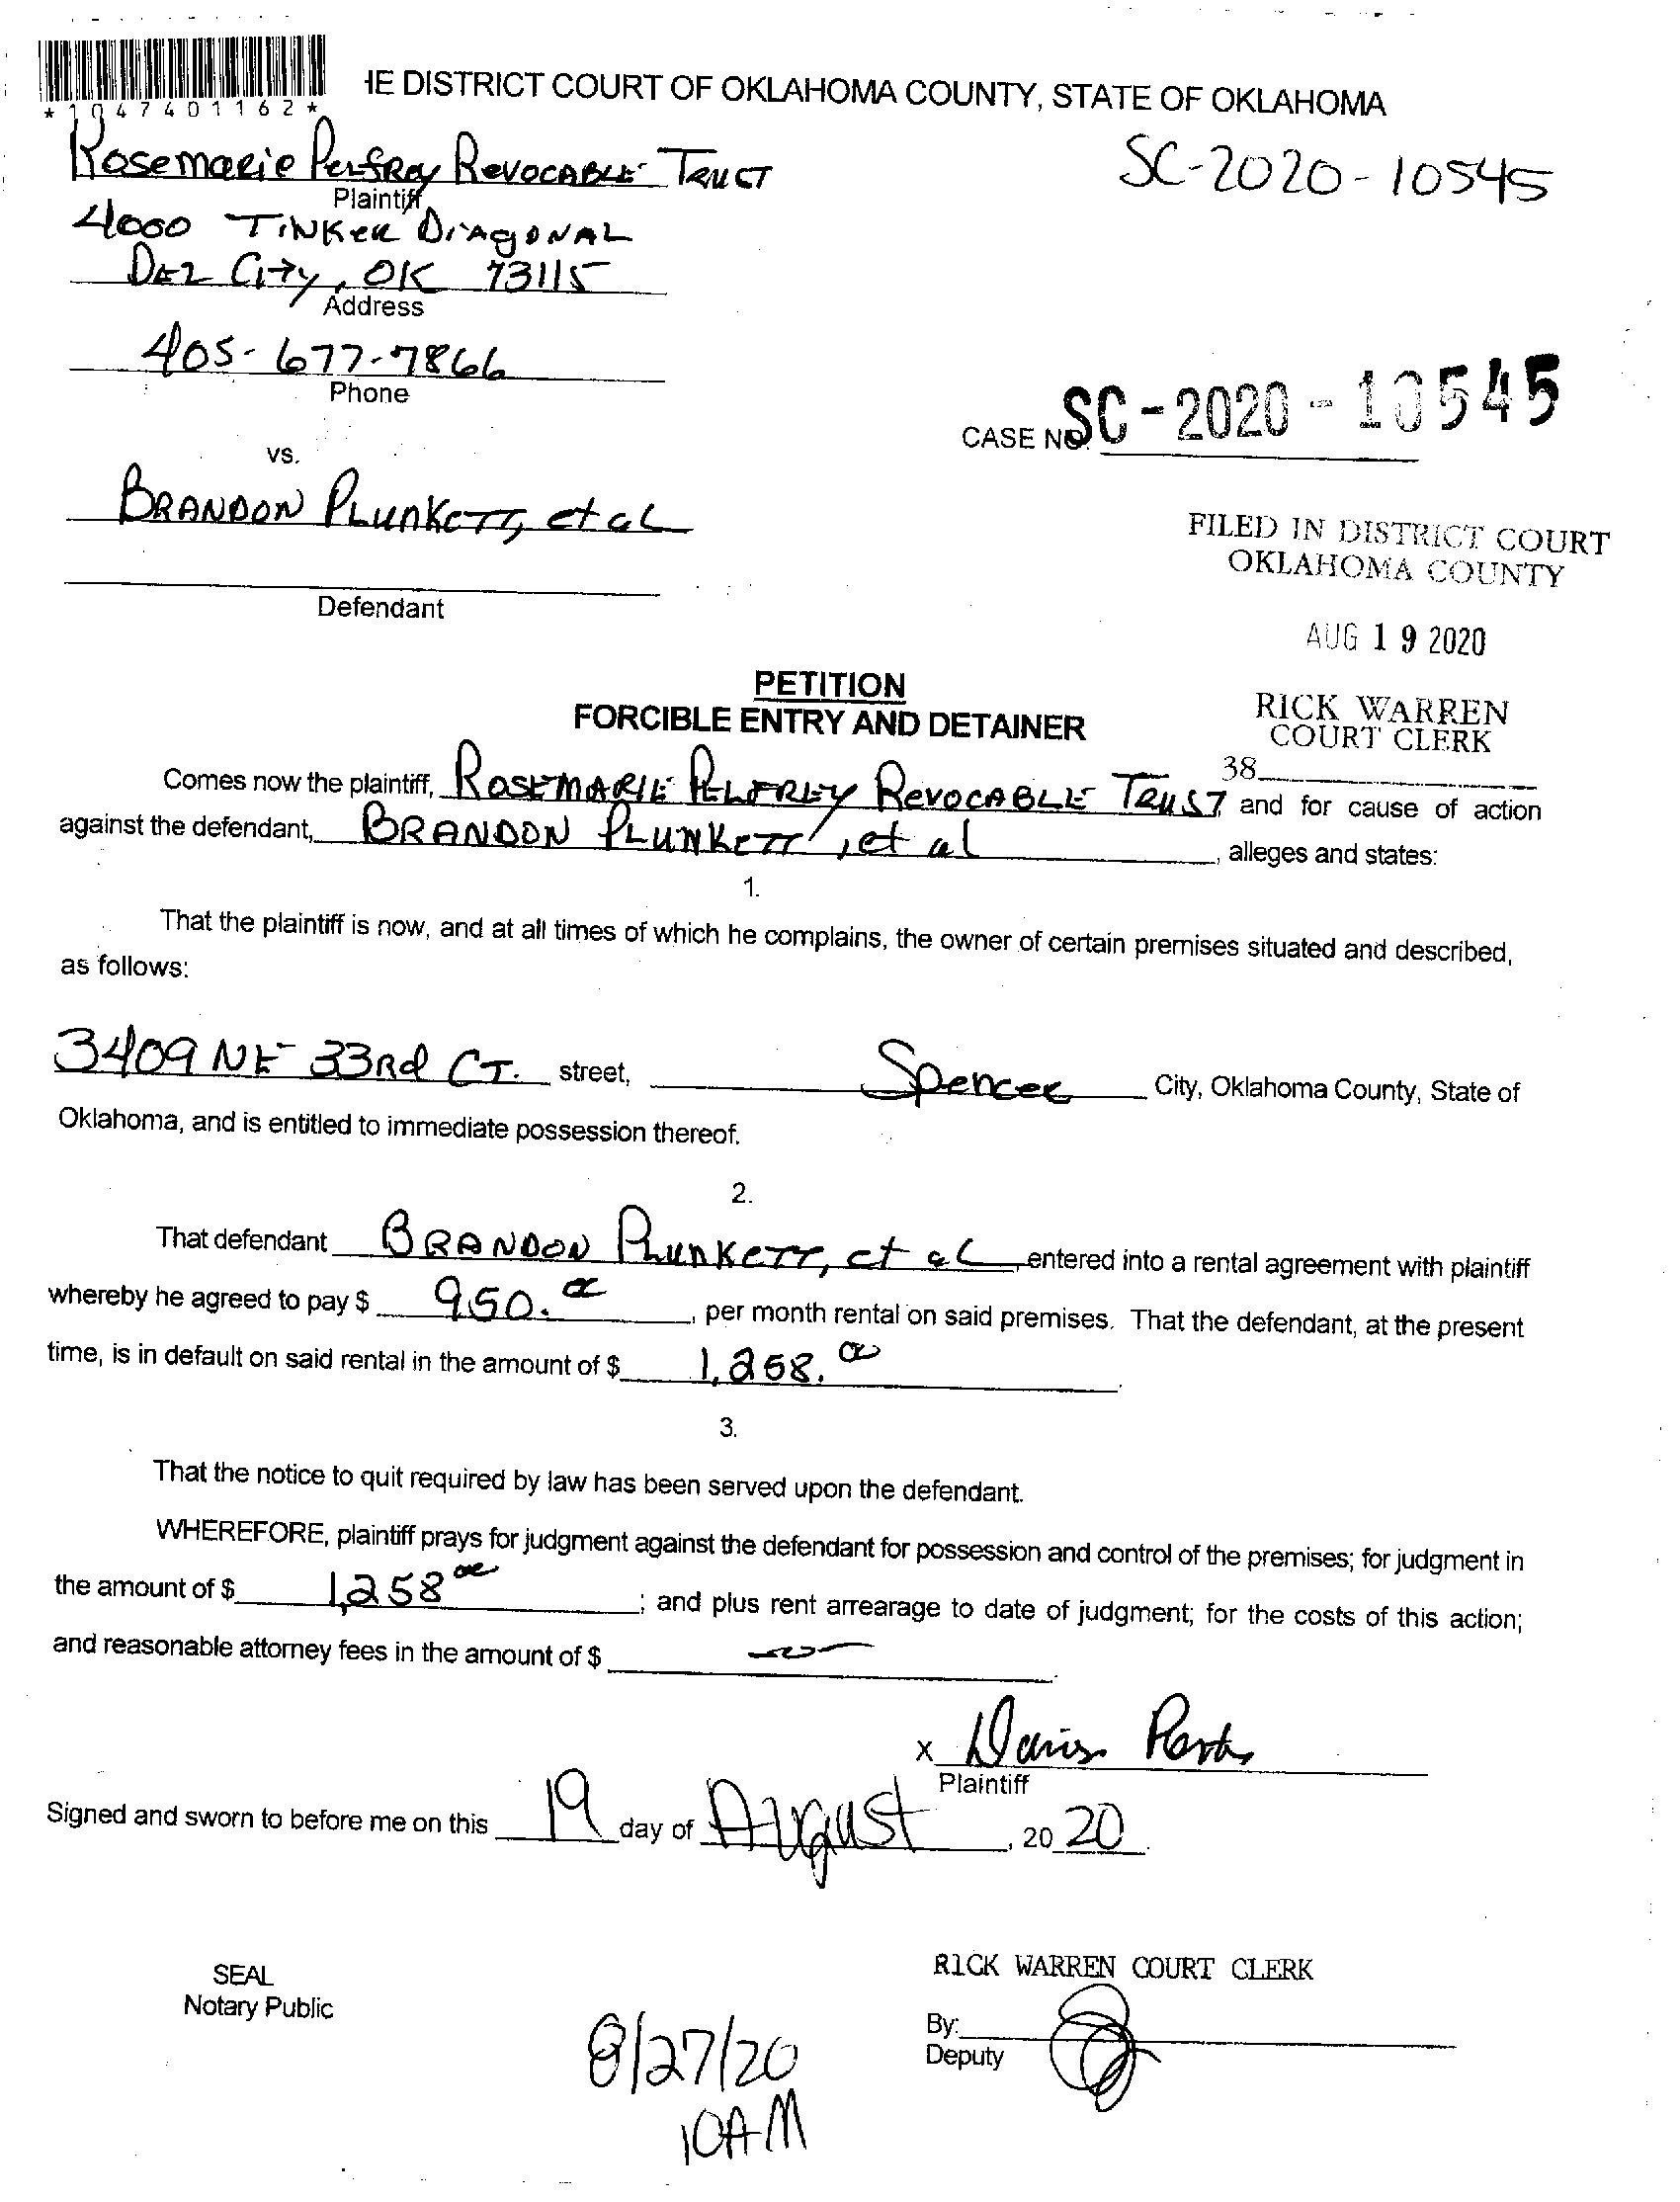 *1047401162*
HE DISTRICT COURT OF OKLAHOMA COUNTY, STATE OF OKLAHOMA
Rosemarie Pelfrey Revocable Trust
SC-2020-10545
Plaintiff
4000 Tinker Diagonal
Del City, OK 73115
Address
405-677-7866
Phone
CASE NO. SC-2020-10545
vs.
Brandon Plunkett, et al
FILED IN DISTRICT COURT
OKLAHOMA COUNTY
Defendant
AUG 19 2020
PETITION
RICK WARREN
FORCIBLE ENTRY AND DETAINER
COURT CLERK
38
Comes now the plaintiff, Rosemarie Pelfrey Revocable Trust, and for cause of action
against the defendant, Brandon Plunkett, et al, alleges and states:
1.
That the plaintiff is now, and at all times of which he complains, the owner of certain premises situated and described,
as follows:
3409 NE 33Rd CT. street, Spencer City, Oklahoma County, State of
Oklahoma, and is entitled to immediate possession thereof.
2.
That defendant Brandon Plunkett, et al, entered into a rental agreement with plaintiff
whereby he agreed to pay $ 950.00, per month rental on said premises. That the defendant, at the present
time, is in default on said rental in the amount of $ 1,258.00.
3.
That the notice to quit required by law has been served upon the defendant.
WHEREFORE, plaintiff prays for judgment against the defendant for possession and control of the premises; for judgment in
the amount of $ 1,258 00; and plus rent arrearage to date of judgment; for the costs of this action;
and reasonable attorney fees in the amount of $
x
Plaintiff
Signed and sworn to before me on this 19 day of August, 2020.
SEAL
Notary Public
RICK WARREN COURT CLERK
By:
Deputy
8/27/20
10AM